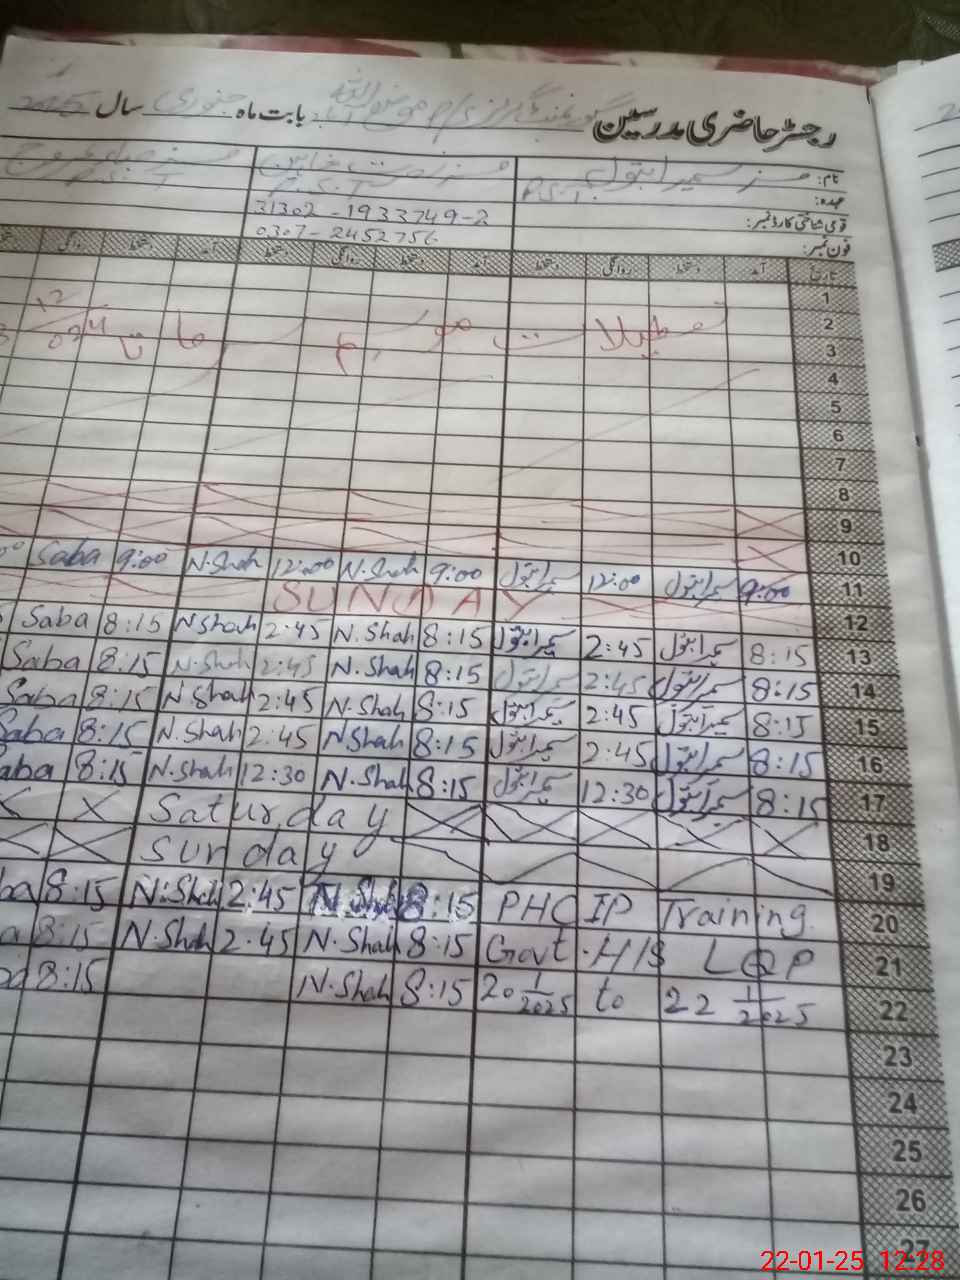 رجسٹر حاضری مدرسین بابت ماہ جنوری سال 2025
نام: مسز سمیرا بتول مسز نصرت شاہین
عہدہ: P.S.T. P.S.T
قومی شناختی کارڈ نمبر: 31302-1933749-2
فون نمبر: 0307-2452756
تاریخ آمد دستخط روانگی دستخط آمد دستخط روانگی دستخط آمد دستخط روانگی
1
2 تعطیلات موسم سرما
3
4
5
6
7
8
9
10
11 9:00 سمیرا بتول 12:00 سمیرا بتول 9:00 N.Shah 12:00 N.Shah 9:00 Saba
12 SUNDAY
13 8:15 سمیرا بتول 2:45 سمیرا بتول 8:15 N.Shah 2:45 N.Shah 8:15 Saba
14 8:15 سمیرا بتول 2:45 سمیرا بتول 8:15 N.Shah 2:45 N.Shah 8:15 Saba
15 8:15 سمیرا بتول 2:45 سمیرا بتول 8:15 N.Shah 2:45 N.Shah 8:15 Saba
16 8:15 سمیرا بتول 2:45 سمیرا بتول 8:15 N.Shah 2:45 N.Shah 8:15 Saba
17 8:15 سمیرا بتول 12:30 سمیرا بتول 8:15 N.Shah 12:30 N.Shah 8:15 aba
18 Saturday
19 Sunday
20 PHCIP Training 8:15 N.Shah 2:45 N.Shah 8:15 ba
21 Govt. H/S LQP 8:15 N.Shah 2:45 N.Shah 8:15 a
22 20 1/2025 to 22 1/2025 8:15 N.Shah 8:15
23
24
25
26
27
22-01-25 12:28